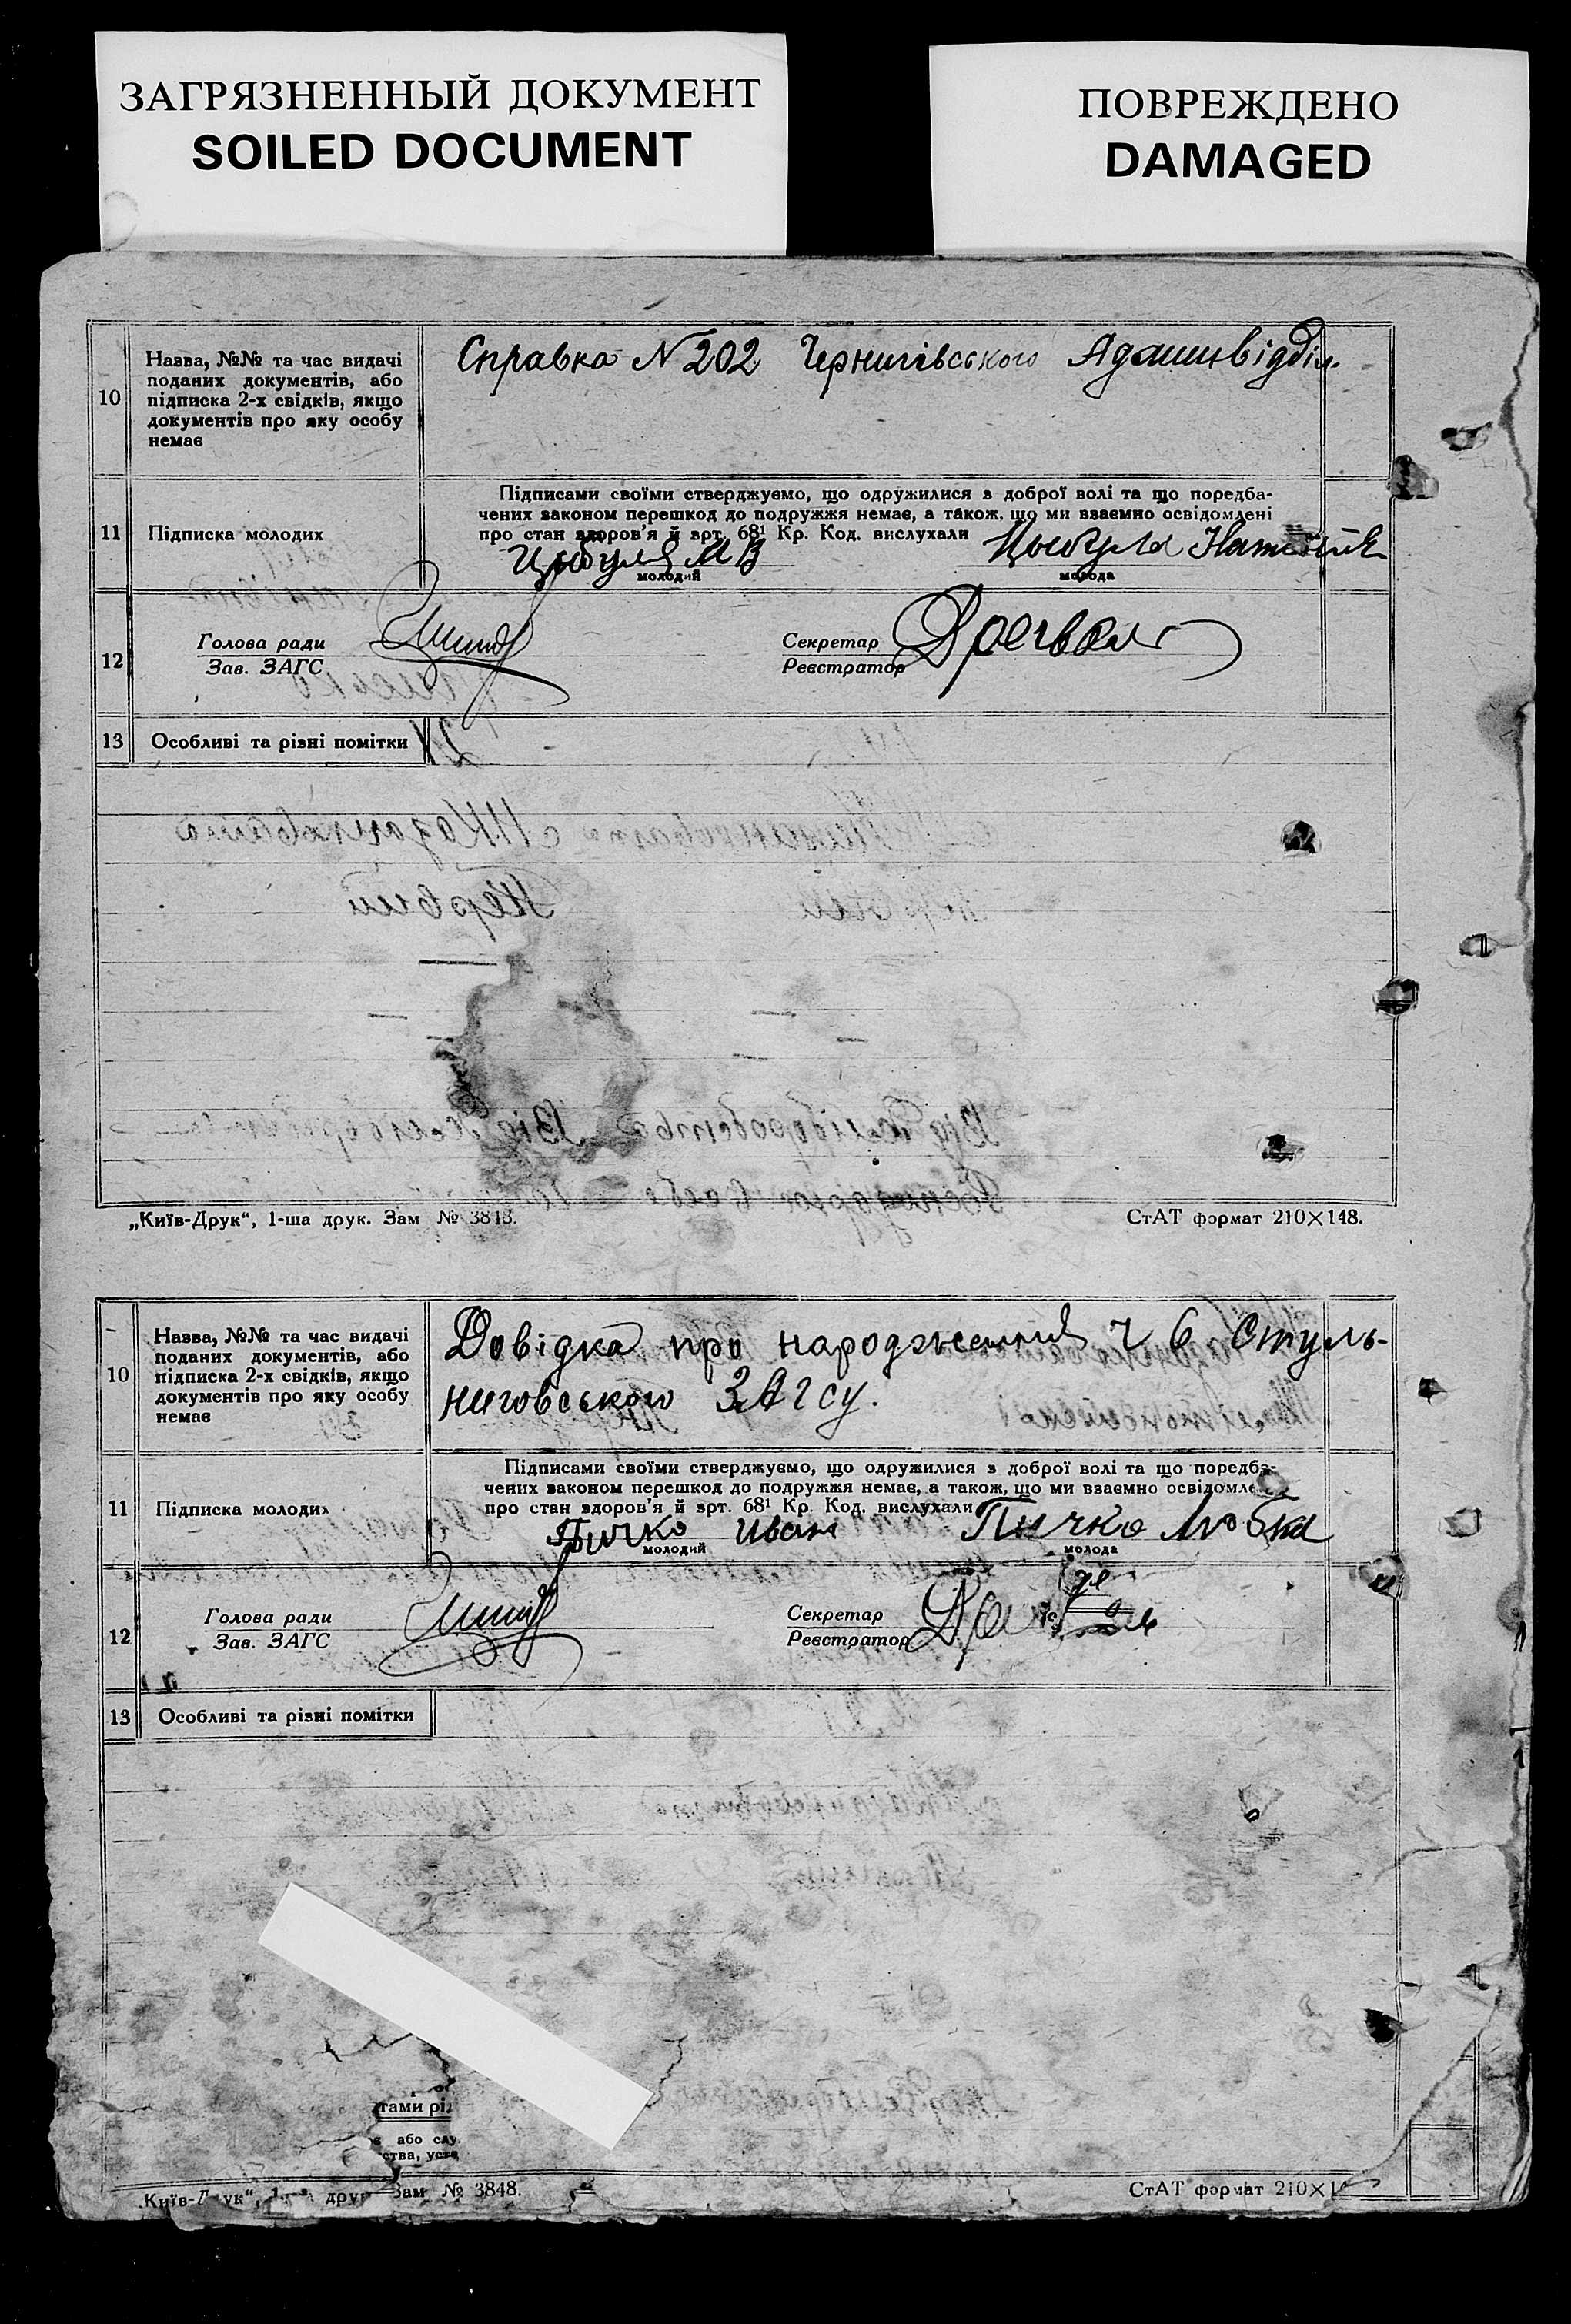 ЗАГРЯЗНЕННЫЙ ДОКУМЕНТ
SOILED DOCUMENT
ПОВРЕЖДЕНО
DAMAGED
10
Назва, №№ та час видачі
поданих документів, або
підписка 2-х свідків, якщо
документів про яку особу
немає
Справка N 202 Чернигівського Адмінвідділ.
11
Підписка молодих
Підписами своїми стверджуємо, що одружилися з доброї волі та що поредба-
чених законом перешкод до подружжя немає, а також, що ми взаємно освідомлені
про стан здоров'я й арт. 68¹ Кр. Код. вислухали
Цибуля М В
молодий
Цибуля
молода
12
Голова ради
Зав. ЗАГС
Секретар
Реєстратор
13
Особливі та різні помітки
„Київ-Друк“, 1-ша друк. Зам № 3848.
СтАТ формат 210×148.
10
Назва, №№ та час видачі
поданих документів, або
підписка 2-х свідків, якщо
документів про яку особу
немає
Довідка про народження ч 6 Стуль-
ниговського ЗАГсу.
11
Підписка молодих
Підписами своїми стверджуємо, що одружилися з доброї волі та що поредба-
чених законом перешкод до подружжя немає, а також, що ми взаємно освідомле
про стан здоров'я й арт. 68¹ Кр. Код. вислухали
Пичко Иван
молодий
Пичко Любка
молода
12
Голова ради
Зав. ЗАГС
Секретар
Реєстратор
13
Особливі та різні помітки
тами рі
або слу
ства, уста
Київ-Друк“, друк Зам № 3848.
СтАТ формат 210×1